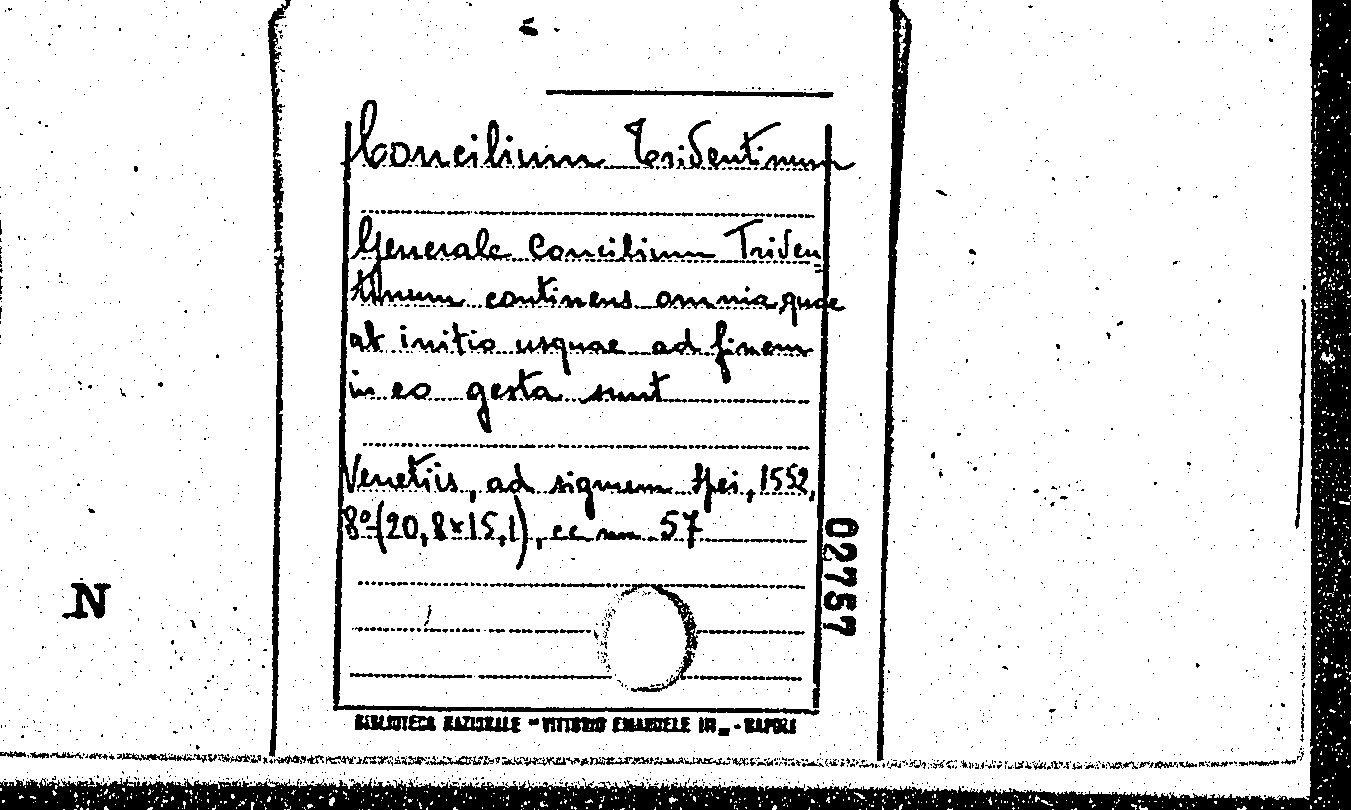 Concilium Tridentinum
Generale Concilium Triden=
tinum continens omnia quae
ab initio usquae ad finem
in eo gesta sunt
Venetiis, ad signum Spei, 1552,
8º (20,8x15,1), cc nn. 57
02757
N
BIBLIOTECA NAZIONALE "VITTORIO EMANUELE III„ - NAPOLI